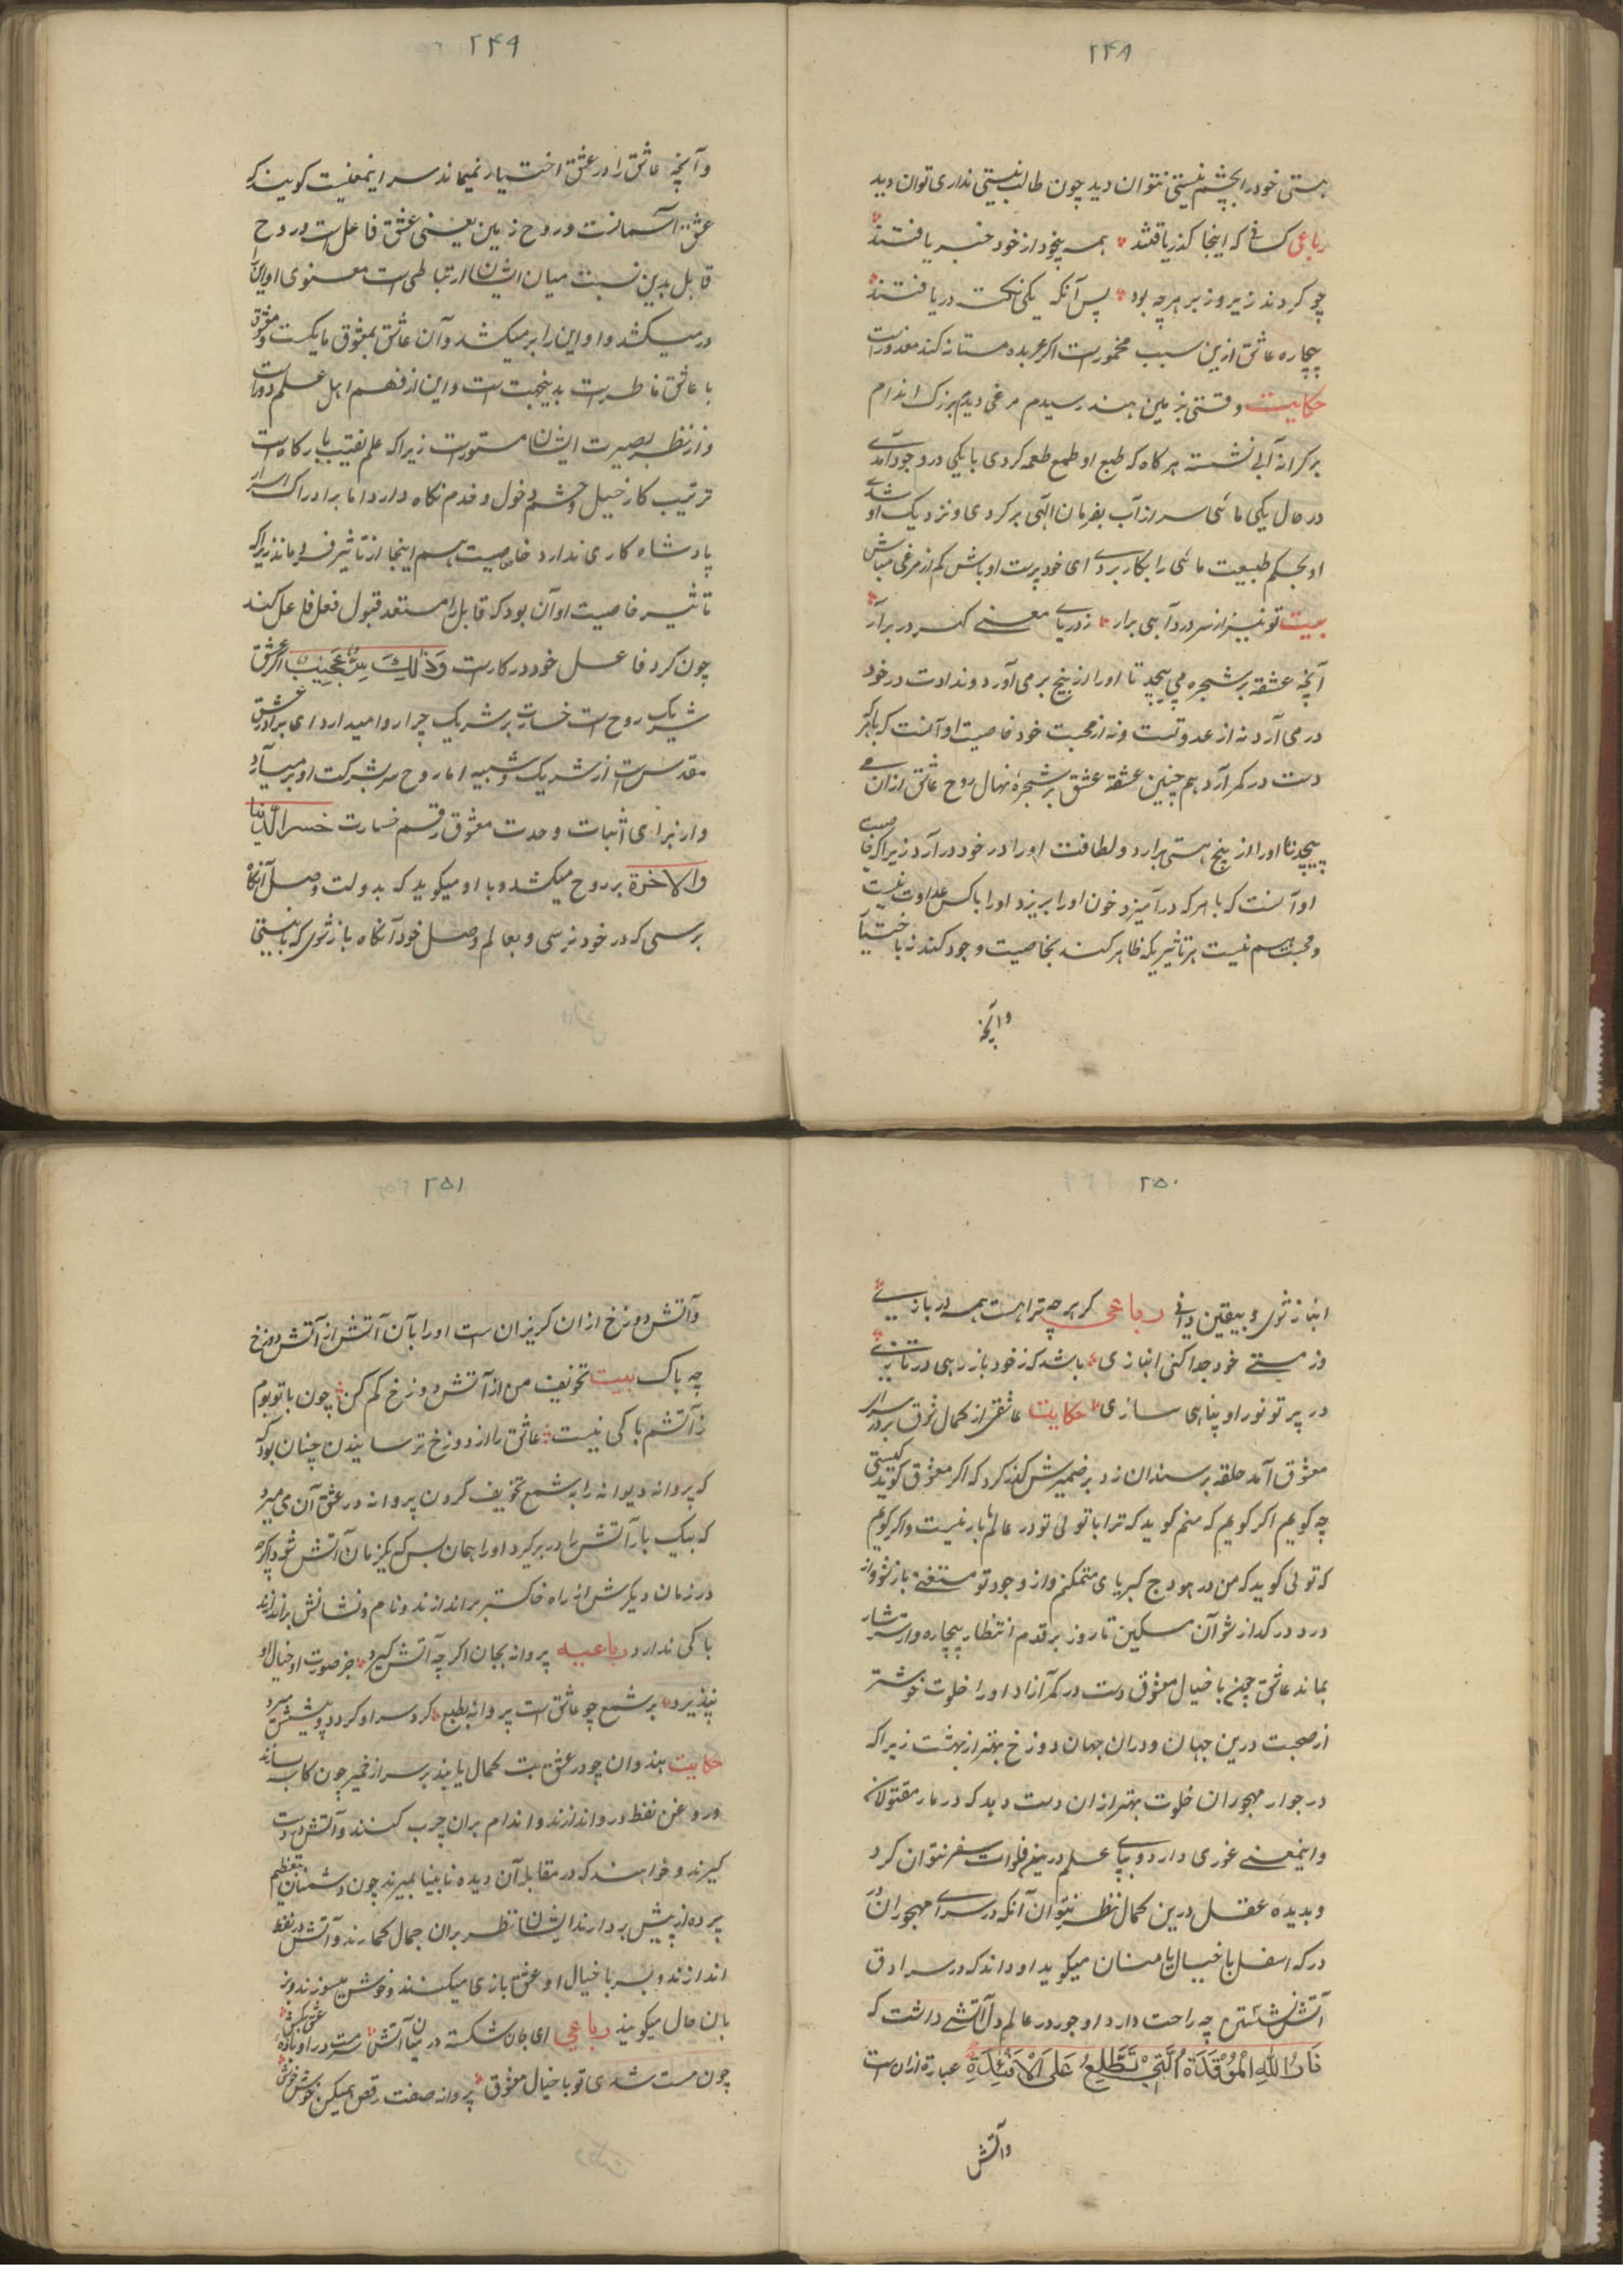 ۲۴۸
هستی خود را بچشم نیستی نتوان دید چون طالب نیستی نداری توان دید
رباعی کسانی که اینجا گذر یافتند همه بیخود از خود خبر یافتند
چو کردند زیر و زبر هرچه بود پس آنکه یکی نکت دریافتند
بیچاره عاشق ازین سبب مخمورست اگر عربده مستانه کند معذورست
حکایت وقتی بزمین هند رسیدم مرغی دیدم بزرگ اندام
بر کرانه آبی نشسته هر کاه که طبع او طمع طعمه کردی یا یکی در وجود آمدی
در حال یکی ماهی سر از آب بفرمان الهی بر کردی و نزدیک او شدی
او بحکم طبیعت ماهی را بکار بردی ای خود پرست اوباش کم از مرغی مباش
بیت تو نیز از سر درد آهی برار ز دریای معنی گهر در برآر
آنچه عشقه بر شجره می پیچد تا او را از بیخ بر می آورد و نداوت در خود
در می آرد نه از عدوتست و نه از محبت خود خاصیت او آنست که با هر که
دست در کمر آرد هم چنین عشقه عشق بر شجرهٔ نهال روح عاشق ازان می
پیچد تا او را از بیخ هستی برارد و لطافت او را در خود در آرد زیرا که خاصیت
او آنست که با هر که در آمیزد خون او را بریزد او را با کس عداوت نیست
و محبت هم نیست هر تاثیریکه ظاهر کند بخاصیت وجود کند نه باختیار
وآنچه
۲۴۹
وآنچه عاشق را در عشق اختیار نمیماند سر اینمعنیست کویند که
عشق آسمانست و روح زمین یعنی عشق فاعل است و روح
قابل بدین نسبت میان ایشان ارتباطی است معنوی او این را
در میکشد و او این را بر میکشد و آن عاشق بمعشوق مایلست و معشوق
با عاشق ناظرست بدینجهت است و این از فهم اهل علم دور است
و از نظر بصیرت ایشان مستورست زیرا که علم نقیب بارگاه است
ترتیب کار خیل و حشم و خول و خدم نگاه دارد اما بر ادراک اسرار
پادشاه کاری ندارد خاصیت هم اینجا از تاثیر فرو ماند زیرا که
تاثیر خاصیت او آن بود که قابل را مستعد قبول فعل فاعل کند
چون کرد فاعل خود در کارست وَذٰلِكَ سِرٌّ عَجِیْبٌ اگر عشق
شریک روح است خسارت بر شریک چرا روا میدارد ای برادر عشق
مقدس است از شریک و شبیه اما روح سر بشرکت او بر میآرد
و از برای اثبات وحدت معشوق رقم خسارت خسر الدنیا
والاخرة بر روح میکشد و با او میکوید که بدولت وصل آنگاه
برسی که در خود نرسی و بعالم وصل خود آنگاه باز شوی که با نیستی
۲۵۰
انباز شوی و بیقین دانی رباعی گر هرچه ترا هست همه در بازی
وز هستی خود جدا کنی انبازی باشد که ز خود باز رهی در تازی
در پرتو نور او پناهی سازی حکایت عاشقی از کمال شوق بر در سرای
معشوق آمد حلقه بر سندان زد بر ضمیرش گذر کرد که اگر معشوق کوید کیستی
چه کویم اگر کویم که منم کوید که ترا با توئی تو در عالم ما بار نیست و اگر کویم
که توئی کوید که من در هودج کبریای متمکنم و از وجود تو مستغنی باز شو و از
درد در گداز شو آن مسکین تا روز بر قدم انتظار بیچاره وار
بماند عاشق چون با خیال معشوق دست در کمر آرد او را خلوت خوشتر
از صحبت درین جهان و دران جهان دوزخ بهتر از بهشت زیرا که
در جوار مهجوران خلوت بهتر ازان دست دهد که در مقبولان
واینمعنی غوری دارد و بپای علم درین فلوات سفر نتوان کرد
و بدیدهٔ عقل درین کمال نظر نتوان آنکه در سرای مهجوران و
درکه اسفل با خیال یا منان میکوید او داند که در سرادق
آتش نشستن چه راحت دارد او جور در عالم دل آتشی داشت که
نَارُ اللهِ الْمُوْقَدَةُ الَّتِي تَطَّلِعُ عَلَى الْاَفْئِدَةِ عبارة ازان است
وآتش
۲۵۱
وآتش دوزخ ازان گریزان است او را بآن آتش از آتش دوزخ
چه باک بیت تخویف من از آتش دوزخ کم کن چون با تو بوم
ز آتشم باکی نیست عاشق را از دوزخ ترسانیدن چنان بود که
که پروانه دیوانه را بشمع تخویف کردن پروانه در عشق آن می میرد
که بیک بار آتش را در بر گیرد او را همان بس که یکزمان آتش شود اگرچه
در زمان دیگرش از راه خاکستر براندازند و نام و نشانش براندازند
باکی ندارد رباعیه پروانه بجان اگرچه آتش گیرد جز صورت او خیال او
نپذیرد بر شمع چو عاشق است پروانه بطبع گرد سر او گردد و پیشش میرد
حکایت هندوان چو در عشق بت کمال یابند بر سر از خمیر چون کاسه سازند
و روغن نفط درو اندازند و اندام بران چرب کنند و آتش در دست
گیرند و خواهند که در مقابل آن دیده نابینا بمیرند چون بتعظیم
پرده از پیش بردارند ایشان نظر بران جمال گمارند و آتش در نفط
اندازند و سر با خیال او عشق بازی میکنند و خوش میسوزند و بز
بان حال میکویند رباعی ای جان شکسته در میان آتش سرمست در او بادهٔ عشق بکش
چون مست شدی تو با خیال معشوق پروانه صفت رقص همیکن خوش خوش